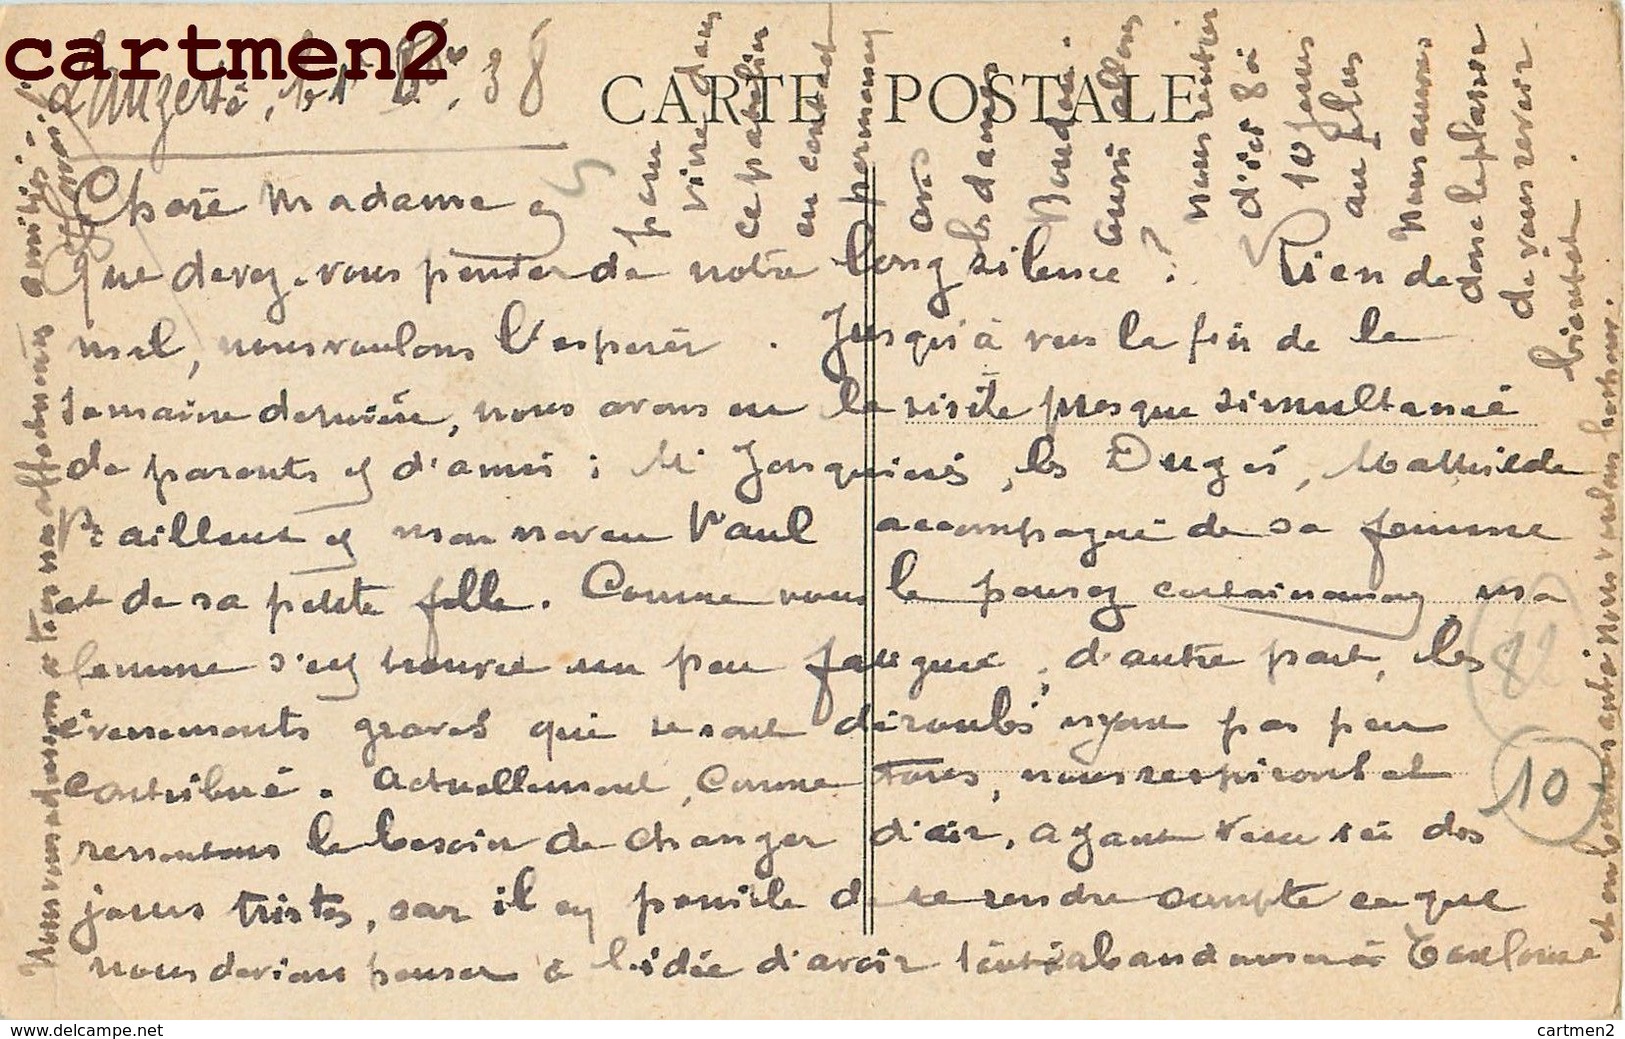 cartmen2
Lauzerte, le 1er 8bre 38
CARTE POSTALE
Chère Madame,
Que devez-vous penser de notre long silence ? Rien de
mal, nous voulons l'espérer. Jusqu'à vers la fin de la
semaine dernière, nous avons eu la visite presque simultanée
de parents et d'amis : Mr Jonquières, les Dugès, Mathilde
et mon neveu Paul accompagné de sa femme
et de sa petite fille. Comme vous le pensez certainement, ma
femme s'est trouvée un peu fatiguée ; d'autre part, les
évènements graves qui se sont déroulés n'y ont pas peu
contribué. Actuellement, comme tous, nous respirons et
ressentons le besoin de changer d'air, ayant vécu ici des
jours tristes, car il est pénible de se rendre compte en que
nous devions penser à l'idée d'avoir à abandonner à Toulouse
pour
vivre dans
ce pavillon
en contact
permanent
avec
les dames
Boudou.
aussi allons
nous rentrer
d'ici 8 à
10 jours
au plus
Nous aurons
donc le plaisir
de vous revoir
bientôt.
et en bonne santé nous voulons
Nous vous adressons à tous nos affectueuses amitiés.
10
www.delcampe.net
cartmen2